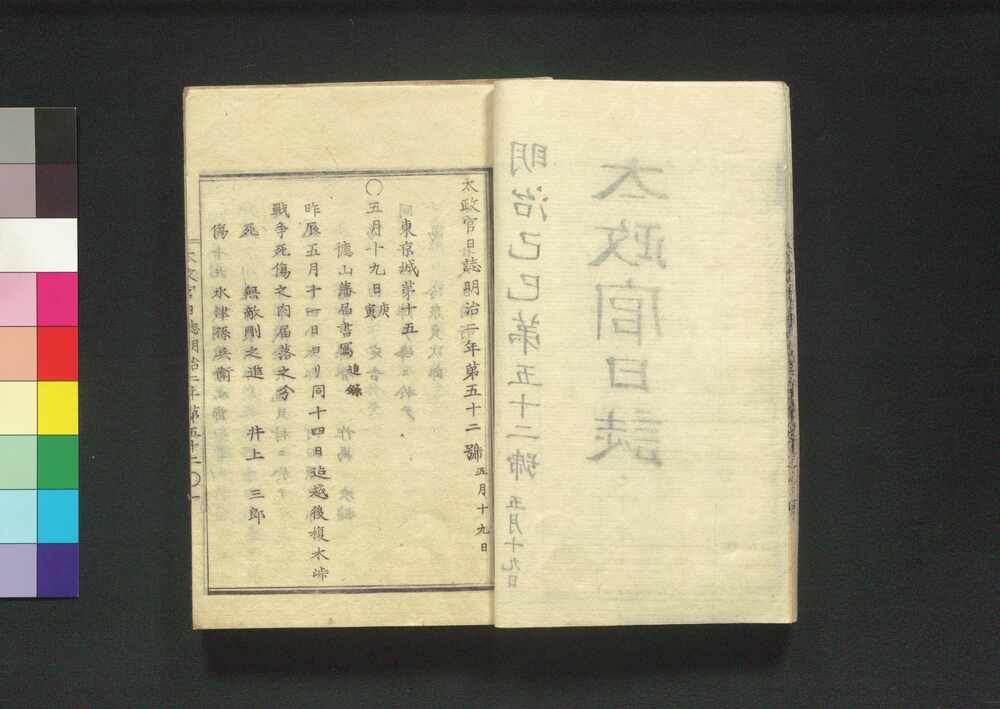 太政官日誌
明治己巳第五十二號 五月十九日
太政官日誌明治二年第五十二號 五月十九日
東京城第十五
〇五月十九日庚寅
徳山藩届書寫 追録
昨辰五月十一日ヨリ同十四日迄越後榎木峠
戦争死傷之内届落之分
死 無敵則之進 井上三郎
傷
太政官日誌明治二年第五十二 〇一